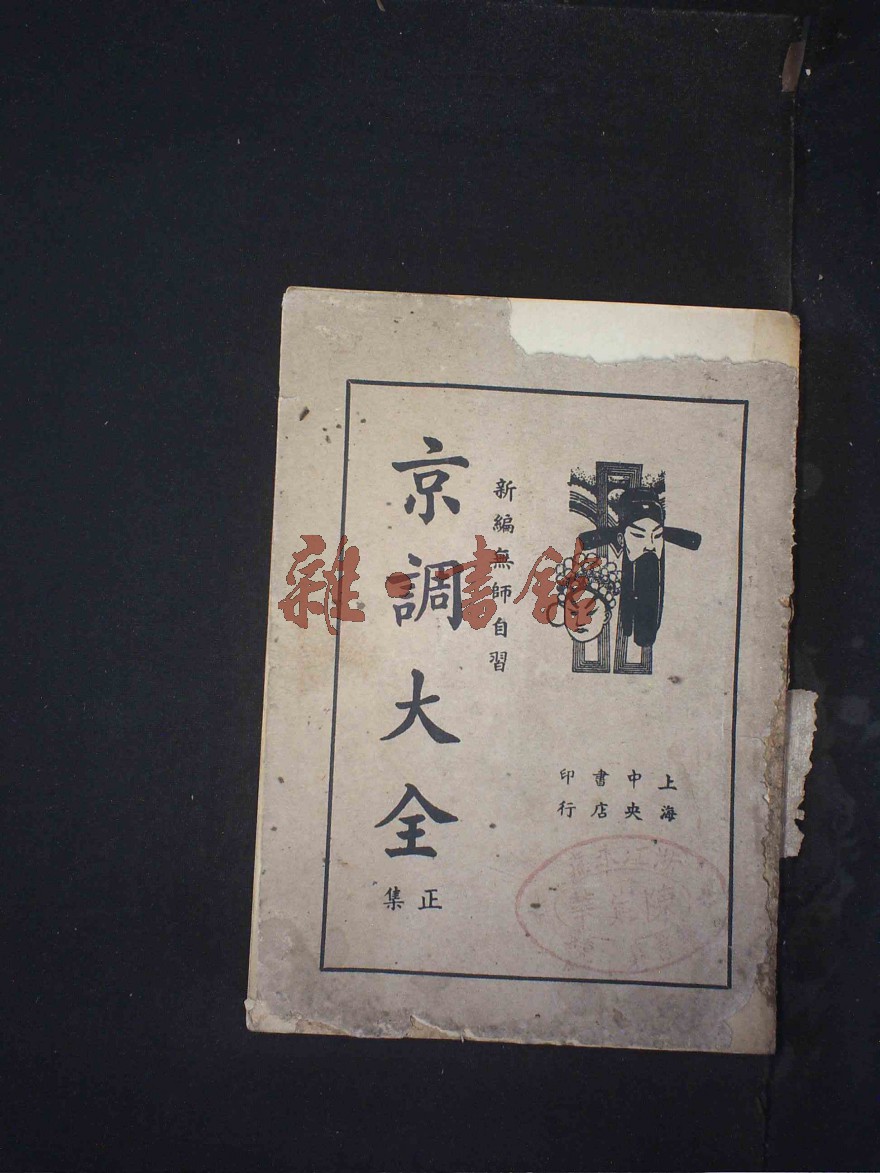 新編無師自習
京調大全
正集
上海
中央
書店
印行
雜·書館